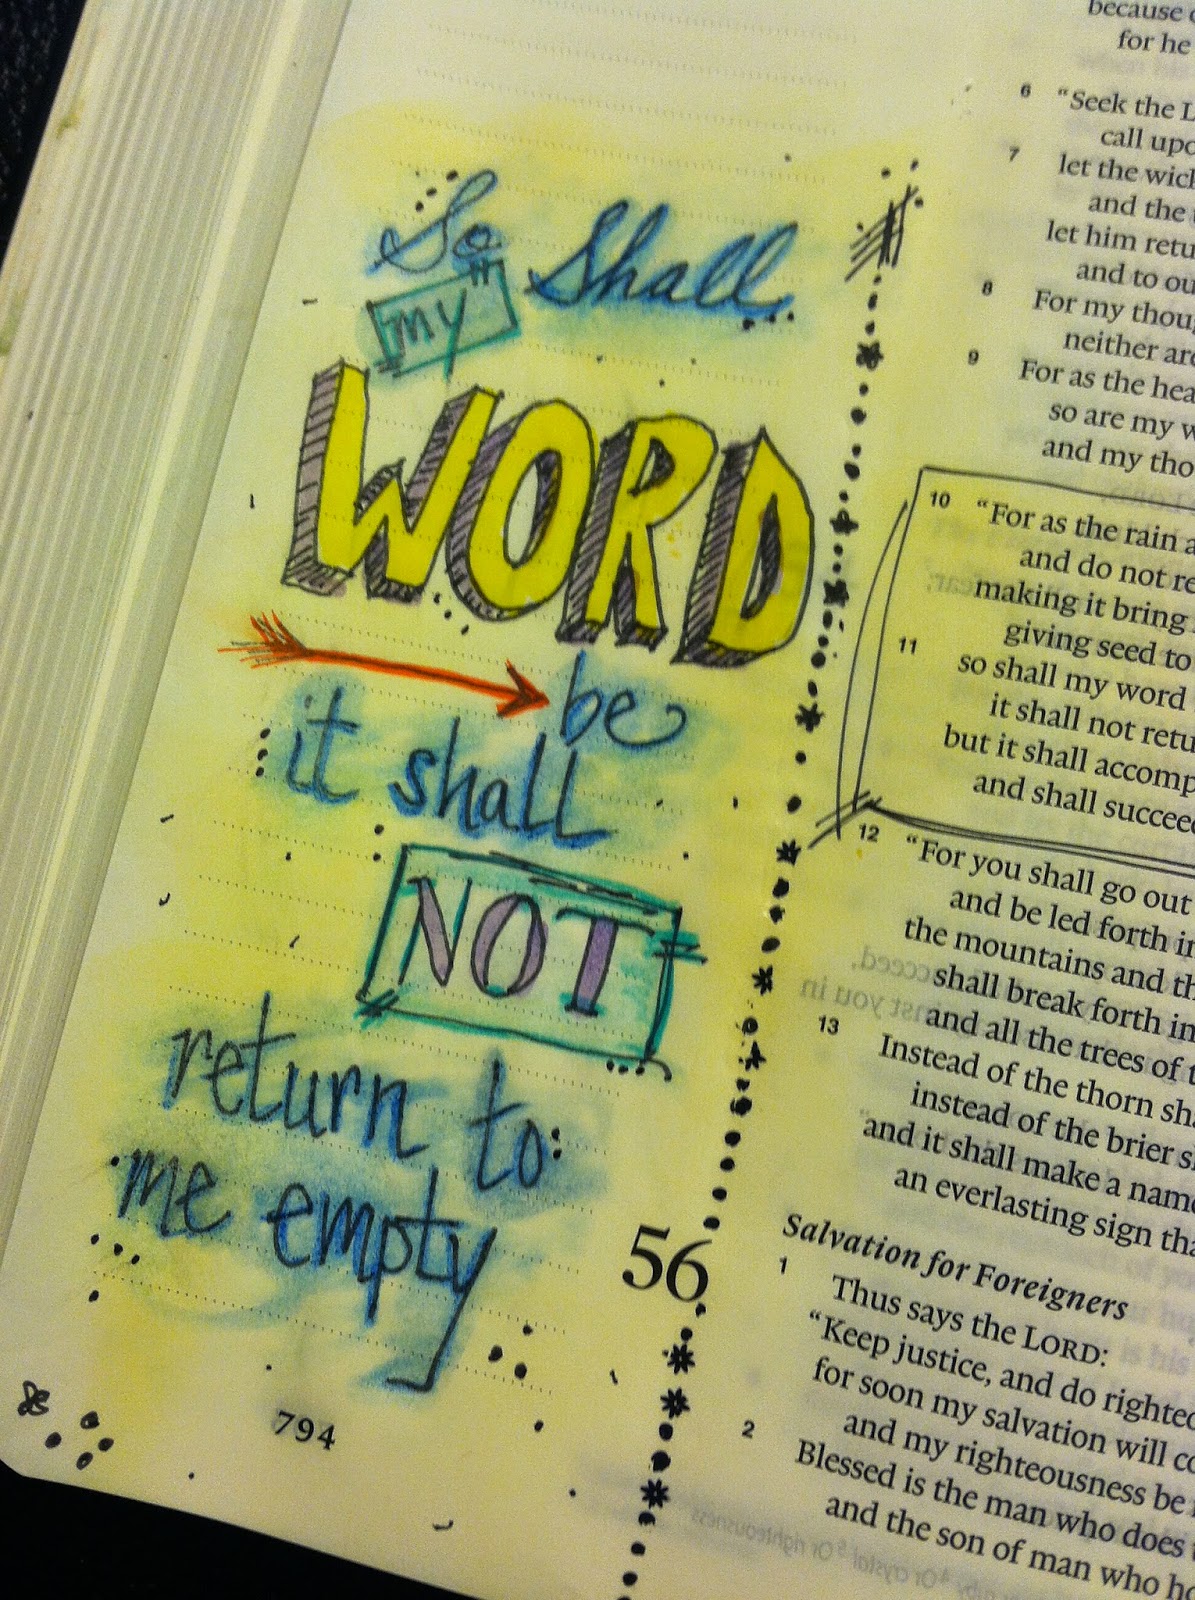 So Shall
my
WORD
be
it shall
NOT
return to
me empty
794
because
for he
6 "Seek the
call
7 let the
and the
let him
and to
8 For my
neither
9 For as the
so are my
and my
10 "For as the rain
and do not
making it bring
giving seed to
11 so shall my word
it shall not
but it shall
and shall
12 "For you shall go out
and be led forth
the mountains and
shall break forth
and all the trees of
13 Instead of the thorn
instead of the brier
and it shall make a
an everlasting sign
56
Salvation for Foreigners
1 Thus says the LORD:
"Keep justice, and do
for soon my salvation will
and my righteousness be
2 Blessed is the man who does
and the son of man who